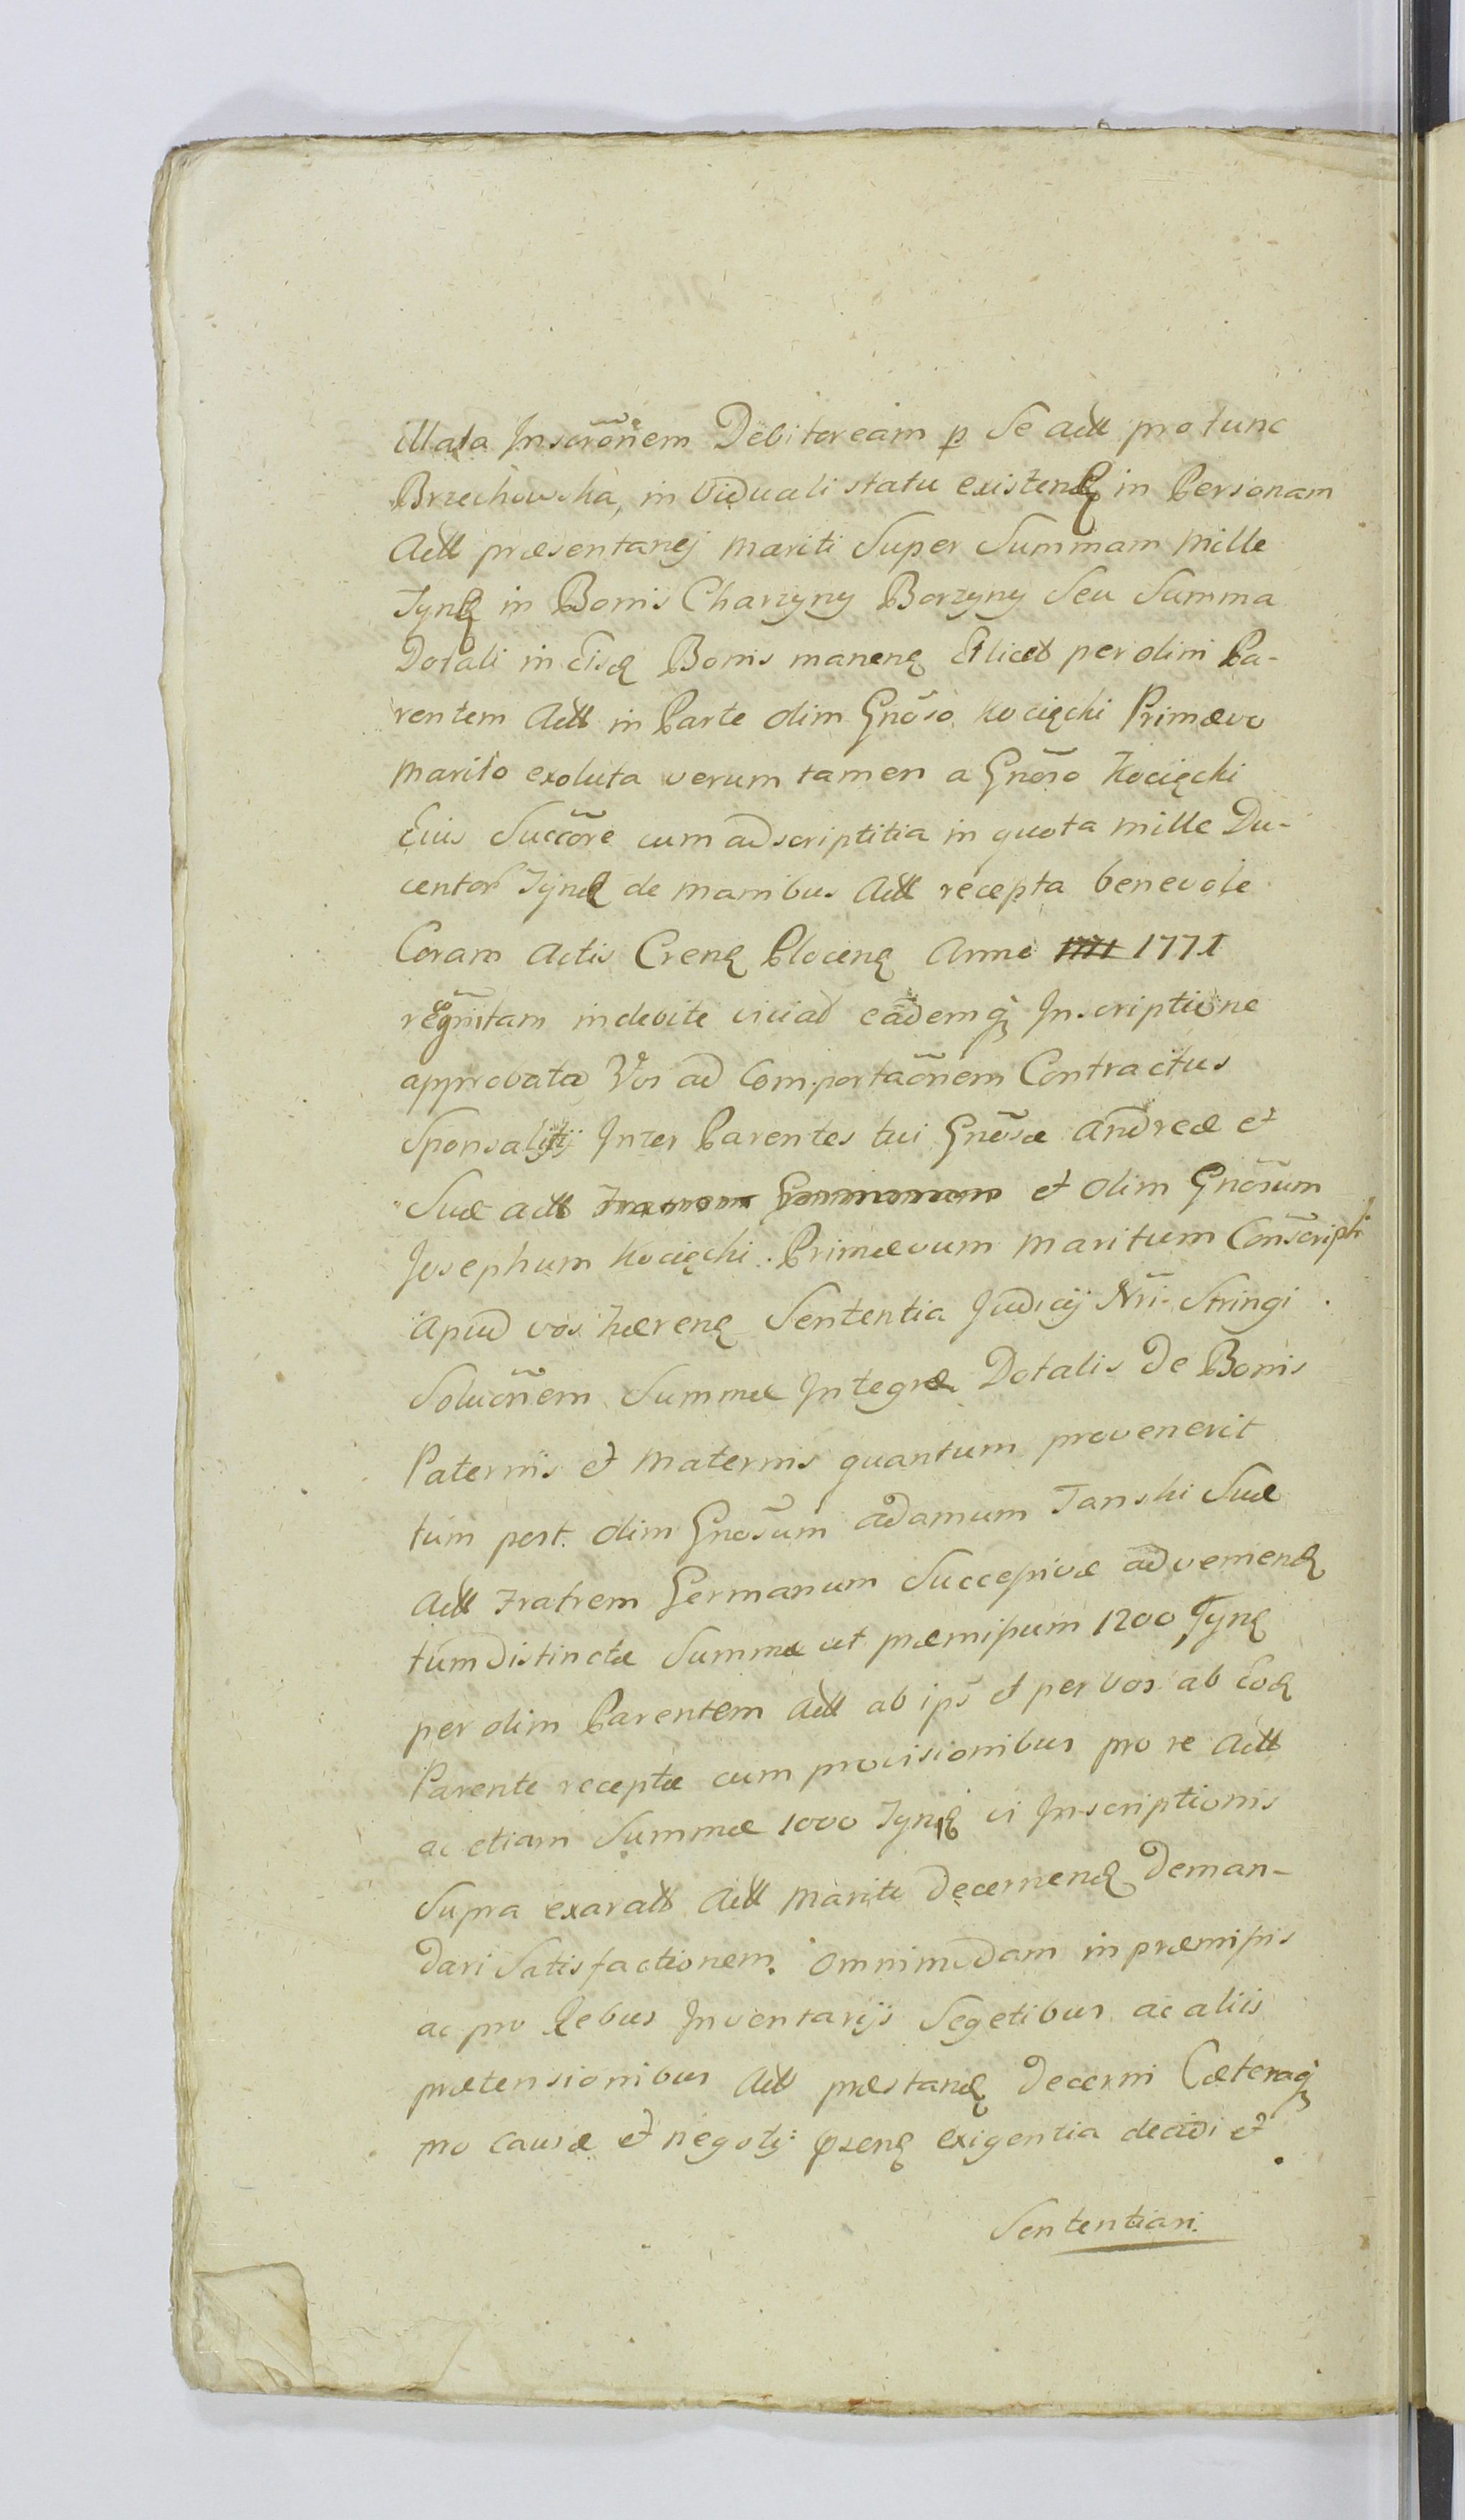 illata Inscrõnem Debitoream p Se actt pro tunc
Brzechowska, in Viduali statu existenę in Personam
Actt præsentanej Mariti Super Summam Mille
Tynę in Bonis Charzyny Borzyny Seu Summa
Dotali in Eisę Bonis manenę Et licet per olim Pa-
rentem Actt in Parte olim Gnõso Kocięcki Primævo
Marito exoluta verum tamen a Gnõso Kocięcki
Eius Succõre cum adscriptitia in quota mille Du-
centor Tynę de manibus Actt recepta benevole
Coram Actis Crenę Plocenę Anno 1771
recgnitam indebite viciad eademq Inscriptione
approbata Vos ad Comportaõnem Contractus
Sponsalitij Inter Parentes tui Gnõsæ Andreæ et
Suæ actt et olim Gnõsum
Josephum Kocięcki Primævum Maritum Conscripti
apud vos hærenę Sententia Judicij Nri Stringi
Soluõnem Summæ Integræ Dotalis De Bonis
Paternis et Maternis quantum provenerit
tum post olim Gnõsum Adamum Tanski Suæ
Actt Fratrem Germanum Successivæ advenienę
tum distinctæ Summæ ut præmissum 1200 Tynę
per olim Parentem Actt ab ips et per vos ab Eoę
Parente receptæ cum provisionibus pro re Actt
ac etiam Summæ 1000 Tynę vi Inscriptionis
Supra exaratt Actt Mariti Decernenę Deman-
dari Satisfactionem omnimodam in præmissis
ac pro Rebus Inventarijs Segetibus ac aliis
prætensionibus Actt præstanę Decerni Cæteraq
pro causæ et negotij pzenę exigentia decidi et
Sententiari.